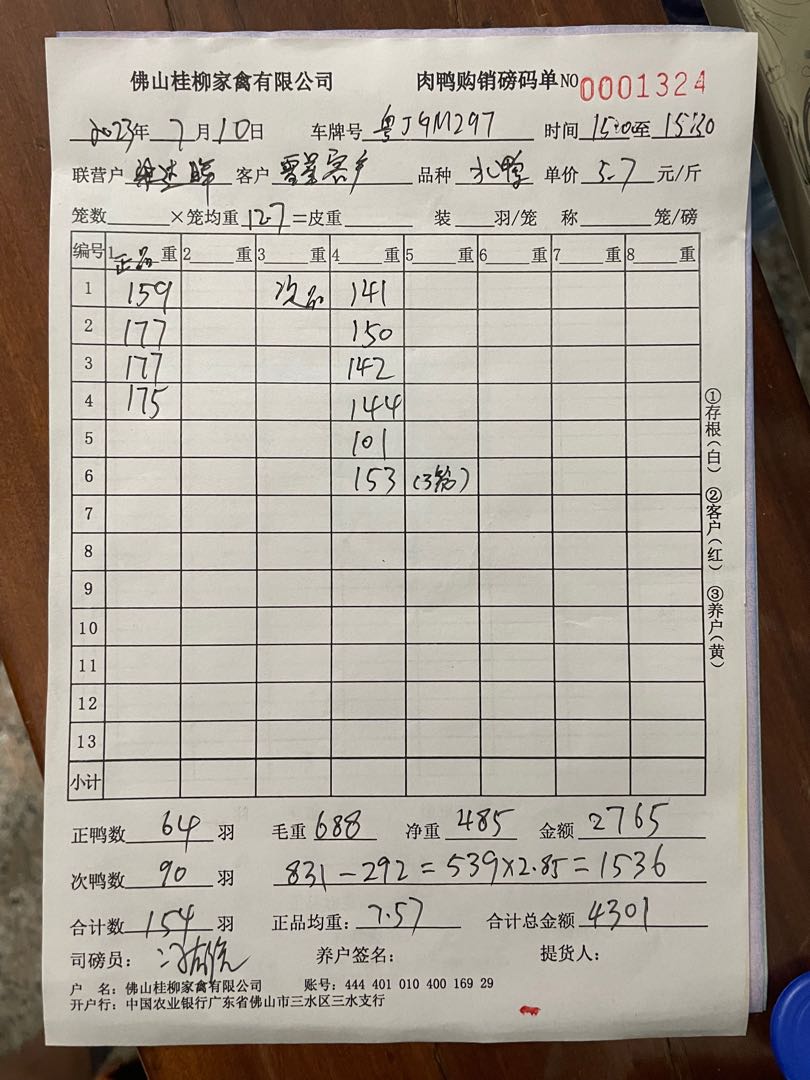 佛山桂柳家禽有限公司 肉鸭购销磅码单 NO 0001324
2023年 7月10日 车牌号 粤J9M297 时间 15:00至 15:30
联营户 客户 品种 单价 5.7 元/斤
笼数 ×笼均重 12.7 =皮重 装 羽/笼 称 笼/磅
编号 1 正品 重 2 重 3 重 4 重 5 重 6 重 7 重 8 重
1 159 次品 141
2 177 150
3 177 142
4 175 144
5 101
6 153 (3笼)
7
8
9
10
11
12
13
小计
①存根(白) ②客户(红) ③养户(黄)
正鸭数 64 羽 毛重 688 净重 485 金额 2765
次鸭数 90 羽 831-292=539×2.85=1536
合计数 154 羽 正品均重: 7.57 合计总金额 4301
司磅员: 养户签名: 提货人:
户 名: 佛山桂柳家禽有限公司 账号: 444 401 010 400 169 29
开户行: 中国农业银行广东省佛山市三水区三水支行